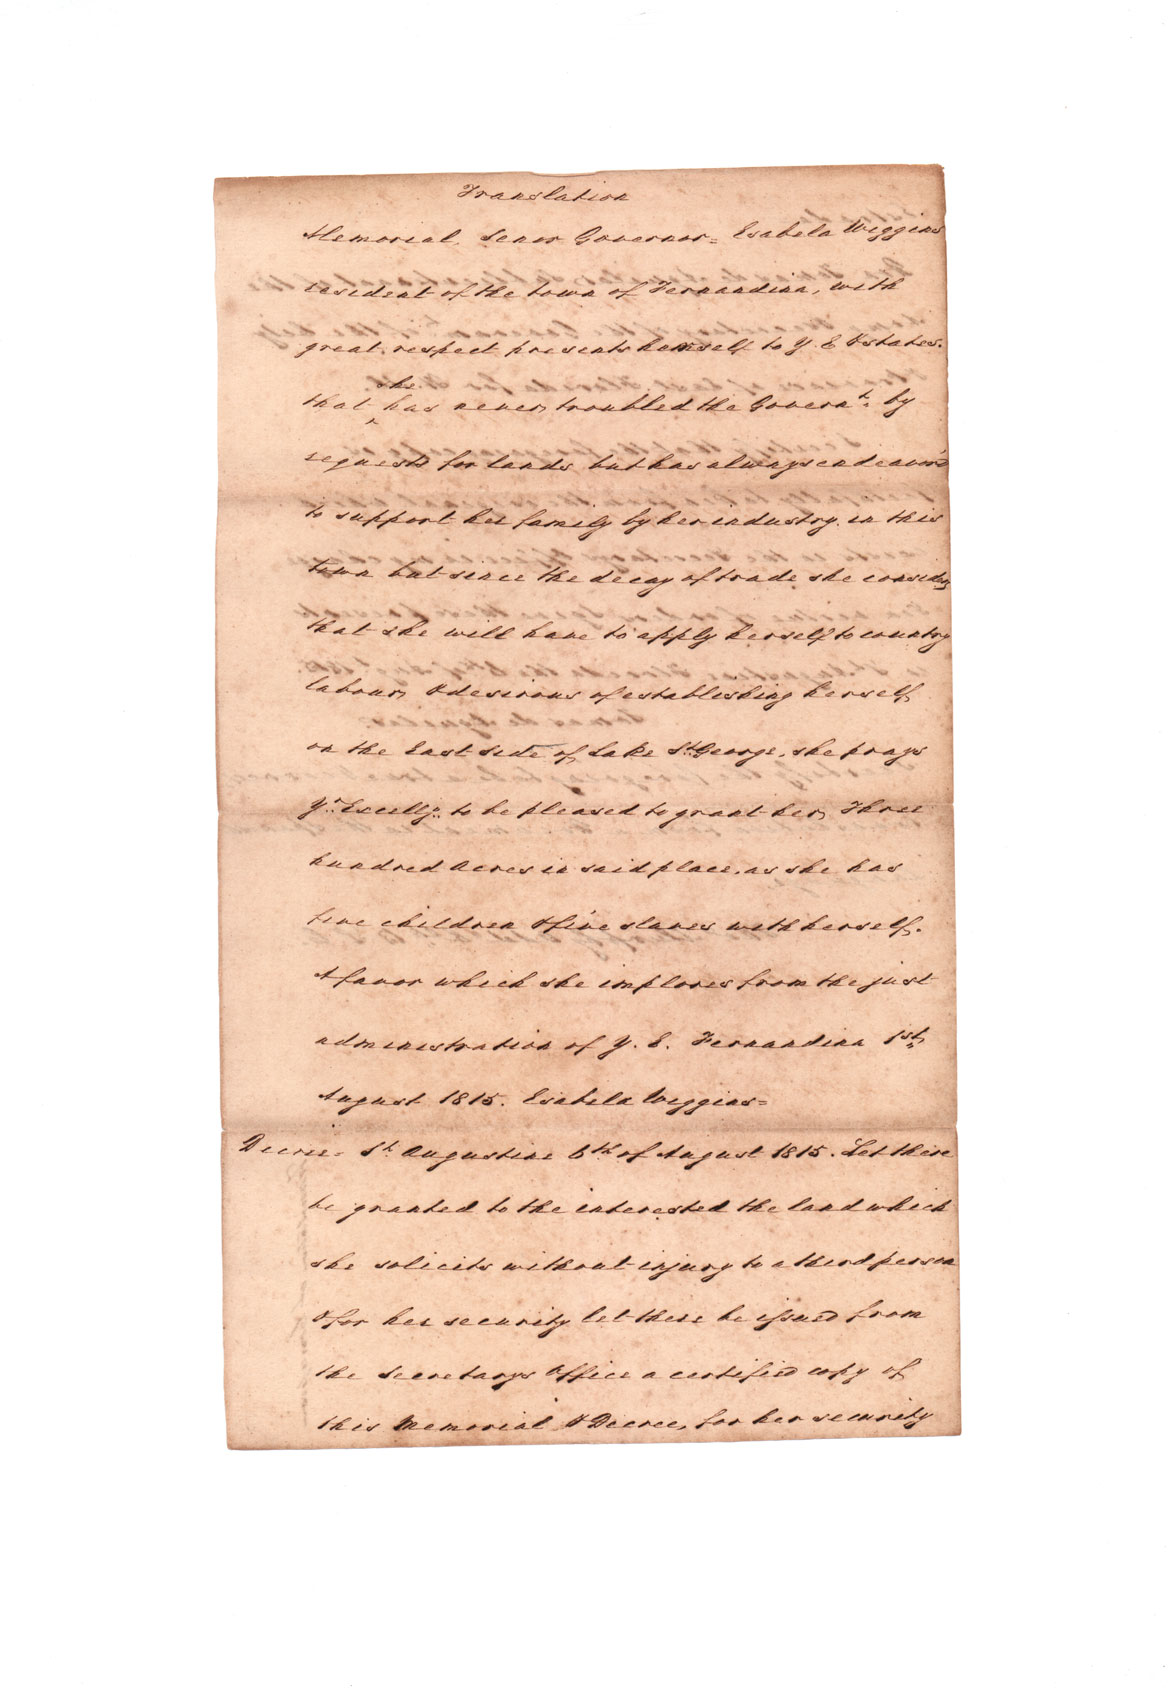 Translation
Memorial, Senor Governor = Esabela Wiggins
resident of the town of Fernandina, with
great respect presents hemself to Y. E & states.
that ^she has never troubled the Governt. by
requests for lands but has always endeavord
to support her family by her industry in this
town but since the decay of trade she considers
that she will have to apply herself to country
labour, & desirous of establishing herself
on the East side of Lake St. George, she prays
yr. Excelly. to be pleased to grant her, Three
hundred Acres in said place, as she has
five children & five slaves with herself.
A favor which she implores from the just
administration of Y. E. Fernandina 1st.
August 1815. Esabela Wiggins =
Decree = St. Augustine 6th of August 1815. Let there
be granted to the interested the land which
she solicits without injury to a third person
& for her security let there be issued from
the Secretarys Office a certified copy of
this Memorial & Decree, for her security